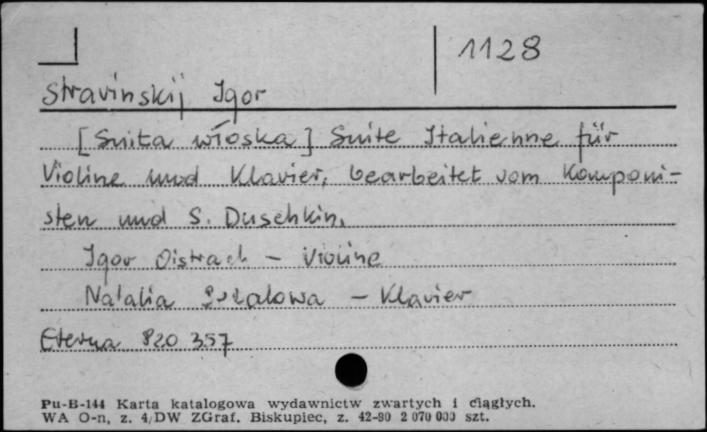 1128
Stravinskij Igor
[Suita włoska] Suite Italienne für
Violine und Klavier, bearbeitet vom Komponi-
sten und S. Duschkin,
Igor Oistrach - Violine
Natalia - Klavier
Eterna 820 357
Pu-B-144 Karta katalogowa wydawnictw zwartych i ciągłych.
WA O-n, z. 4/DW ZGraf. Biskupiec, z. 42-80 2 070 000 szt.